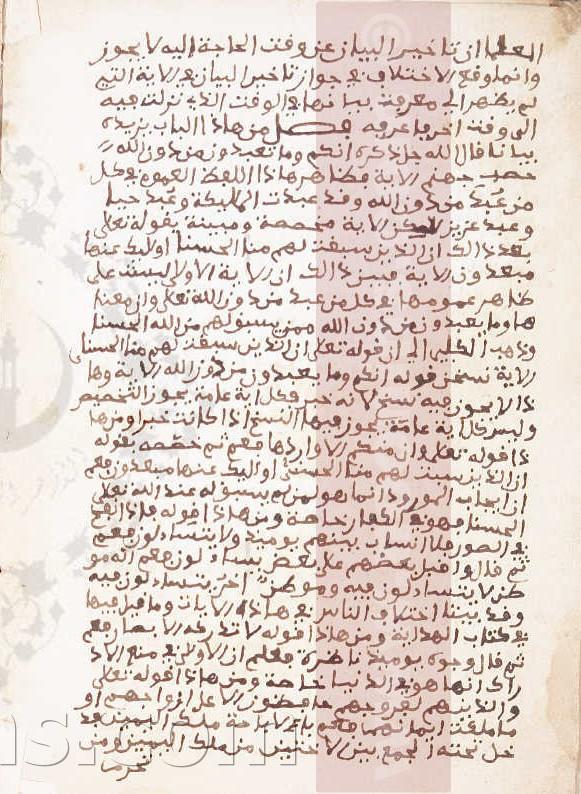 العلماء ان تاخير البيان عن وقت الحاجة اليه لا يجوز
وانما وقع الاختلاف في جواز تاخير البيان في الاية التي
لم يظهر الى معرفة بيانها في الوقت الذي نزلت فيه
الى وقت اخر فاعرفه فصل من هاذا الباب يزيده
بيانا قال الله جل ذكره انكم وما تعبدون من دون الله
حصب جهنم الاية فظاهر هاذا اللفظ العموم في كل
من عبد من دون الله وقد عبدت المليكة وعبد عيسا
وعبد عزير لاكن الاية مخصصة ومبينة بقوله تعلى
بعد ذالك ان الذين سبقت لهم منا الحسنا اوليك عنها
مبعدون الاية فبين ذالك ان الاية الاولى ليست على
ظاهر عمومها في كل من عبد من دون الله تعلى وان معنا
ها وما يعبدون من دون الله ممن لم يسبق لهم من الله الحسنا
وذهب الكلبي الى ان قوله تعلى ان الذين سبقت لهم منا الحسنى
الاية نسخن قوله انكم وما يعبدون من دون الله الاية وها
ذا لا يجوز فيه نسخ لانه خبر فكل اية عامة يجوز التخصيص
وليس كل اية عامة يجوز فيها النسخ اذا كانت خبرا ومن ها
ذا قوله تعلى وان منكم الا واردها فعم ثم خصصه بقوله
ان الذين سبقت لهم منا الحسنى اوليك عنها مبعدون فعلم
ان ايجاب الورود انما هو لمن لم يسبق له عند الله تعلى
الحسنا فهو في الكفار خاصة ومن هاذا قوله فاذا نفخ
في الصور فلا انساب بينهم يوميذ ولا يتساءلون فعم
ثم قال واقبل بعضهم على بعض يتساءلون فعلم انه مو
طن لا يتساءلون فيه وموطن اخر يتساءلون فيه
وقد بينا اختلاف الناس في هاذه الايات وما قيل فيها
في كتاب الهداية ومن هاذا قوله لا تدركه الابصار فعم
ثم قال وجوه يوميذ ناضرة فعلم ان الاولى في منع الاد
راك انها هو في الدنيا خاصة ومن هاذا قوله تعلى
والذين هم لفروجهم حافظون الا على ازواجهم او
ما ملكت ايمانهم فعم باية الاباحة ملك اليمين فد
خل تحته الجمع بين الاختين من ملك اليمين ومن
تحرم